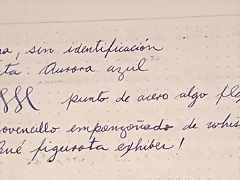 na, sin identificación
ta: Aurora azul
punto de acero algo fle
ovencillo emponzoñado de whis
Qué figurota exhibe!